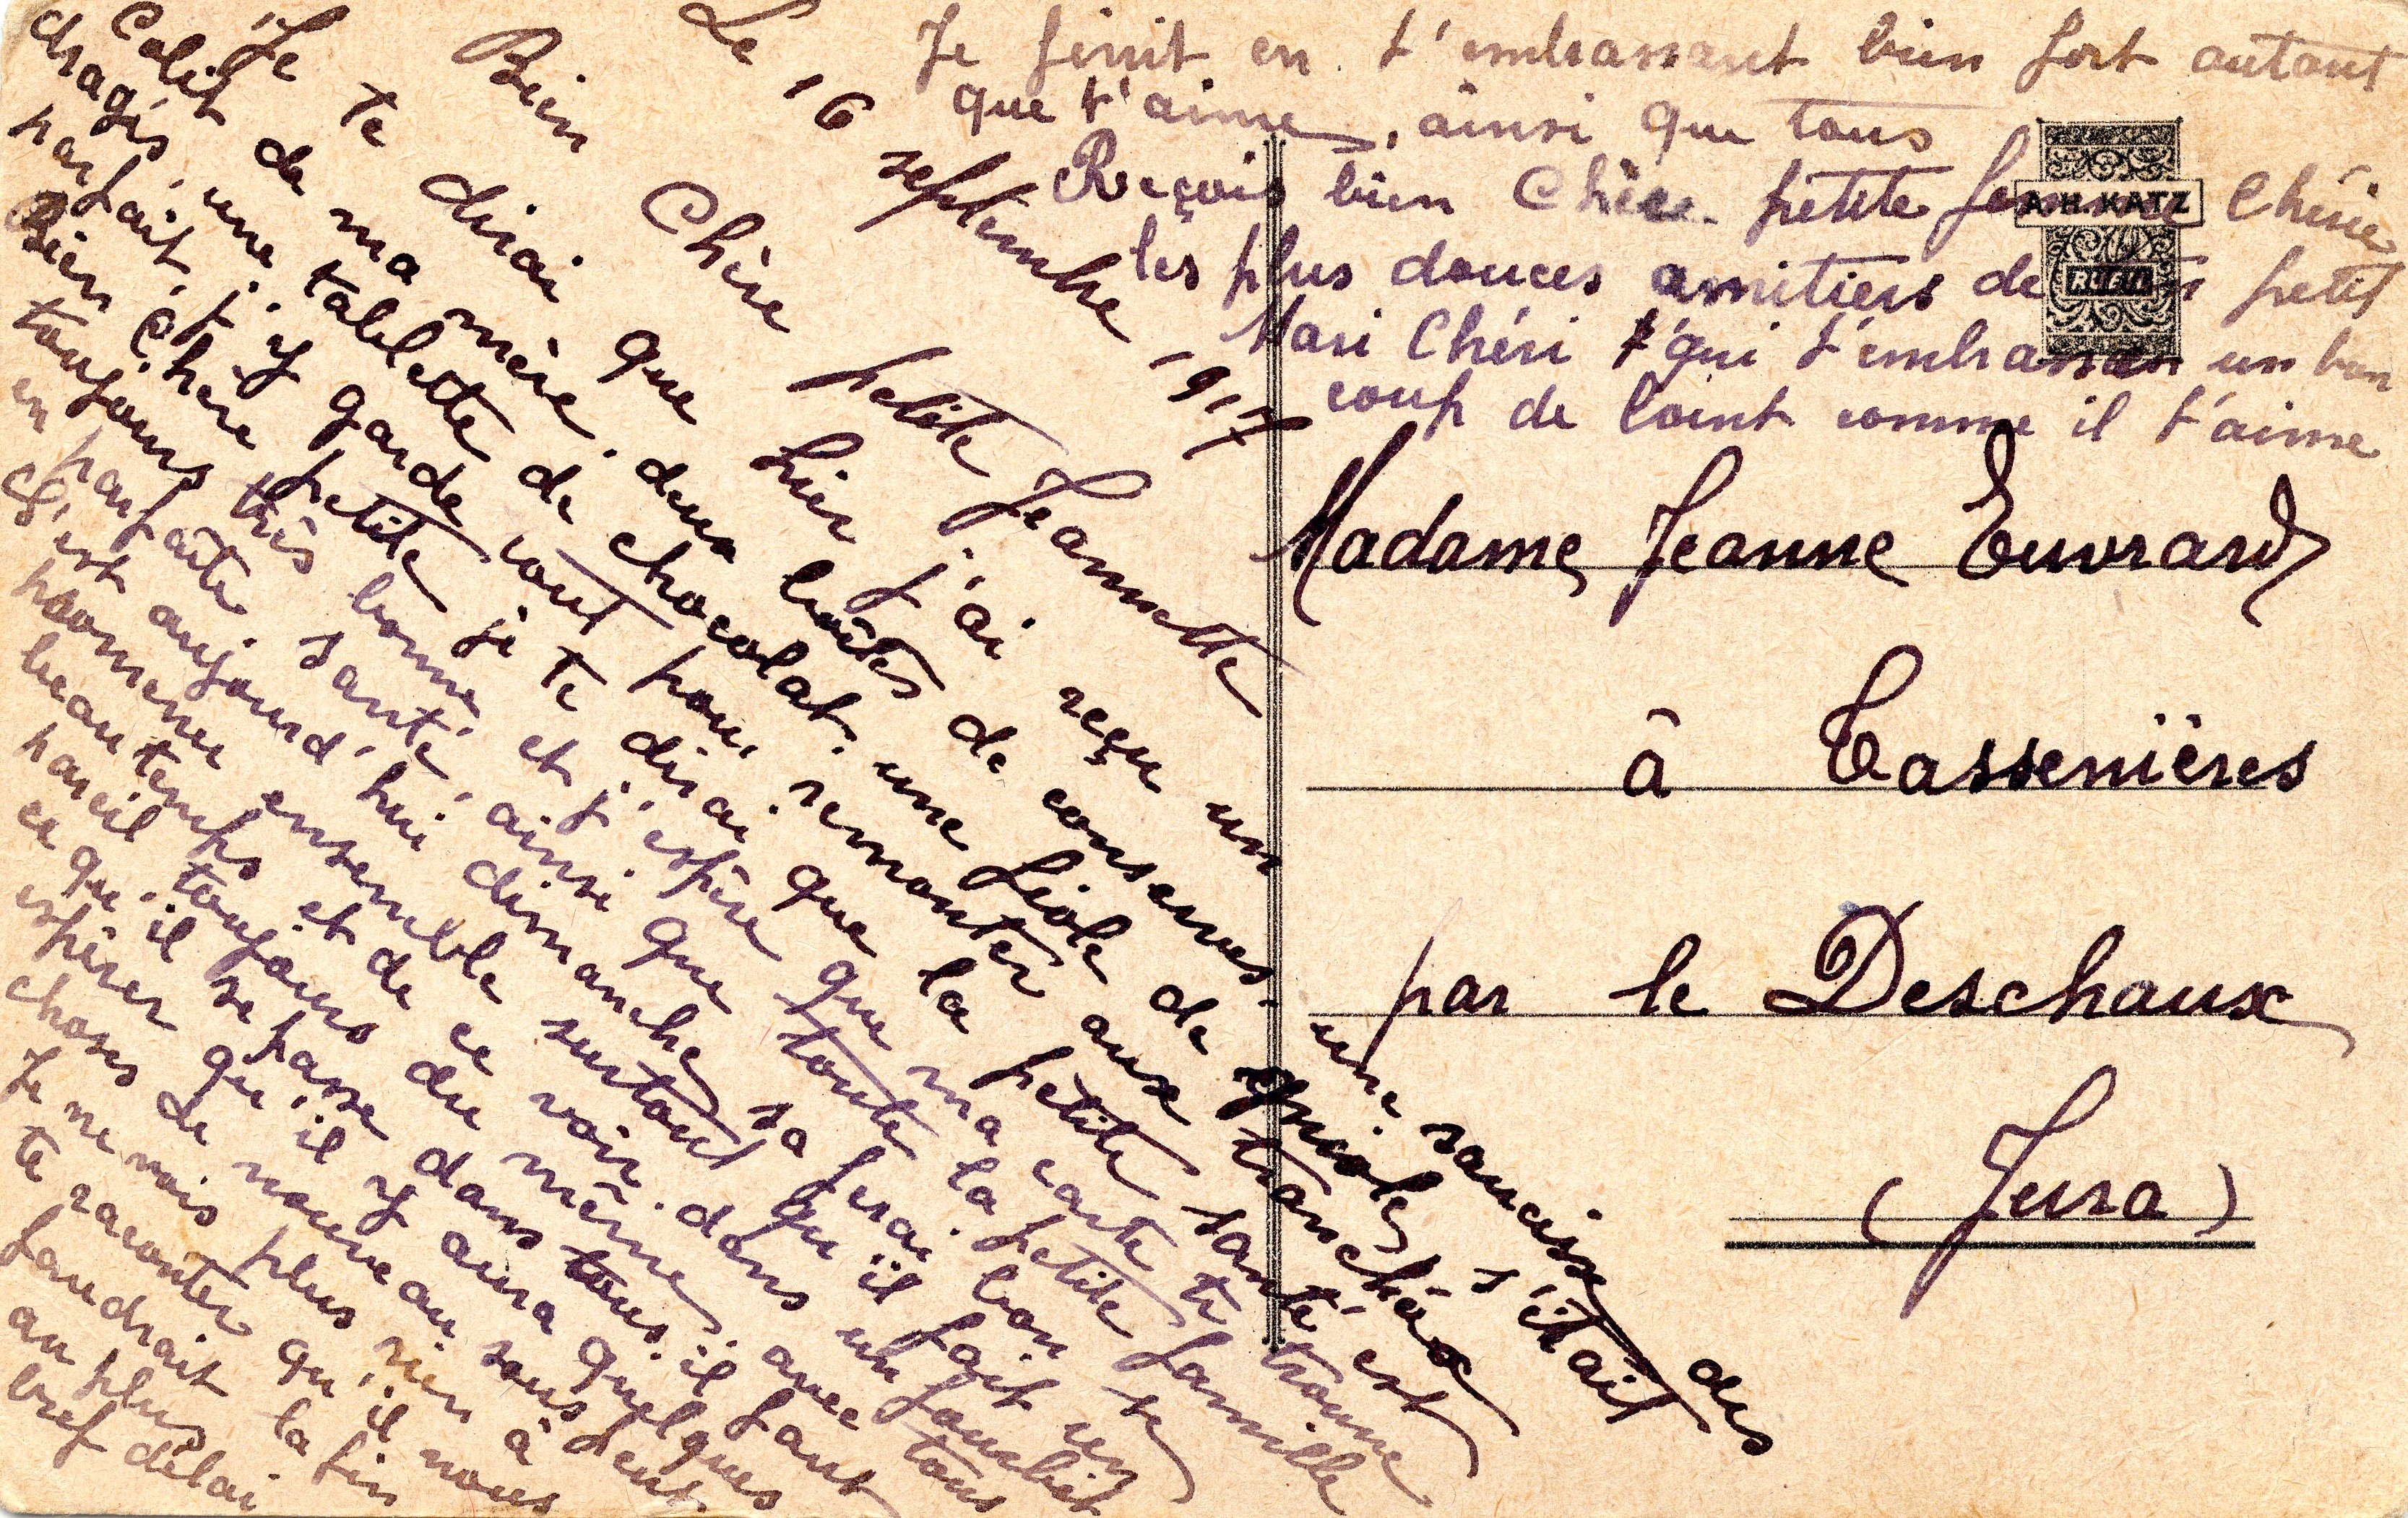 Le 16 septembre 1917
Bien Chère petite Jeannette
Je te dirai que hier j'ai reçu un
Colit de ma mère. deux boîtes de conserves. une saucisse des
dragés, une tablette de chocolat. une fiole de gniole, s'était
parfait, j'y garde tout pour remonter aux tranchéx
Bien Chère petite je te dirai que la petite santé est
toujours très bonne et j'espère que ma carte te trouve
en parfaite santé ainsi que toute la petite famille
C'est aujourd'hui dimanche sa ferai bon se
promener ensemble surtout qu'il fait un
beau temps et de ce voir dans un fourbit
pareil toujours du même avec tous
ce qu'il se passe dans tous. il faut
espèrer qu'il y aura quelques
choses de nouveau sous peut.
Je ne vois plus rien à
te raconter qu'il nous
faudrait la fin
au plus
bref délai
Je finit en t'embrassant bien fort autant
que t'aime, ainsi que tous
Reçois bien Chère petite femme Chérie
les plus douces amitiers de ton petit
Mari Chéri qui t'embrasse un bon
coup de loint comme il t'aime
KATZ
Madame Jeanne Euvrard
à Tassenières
par le Deschaux
(Jura)